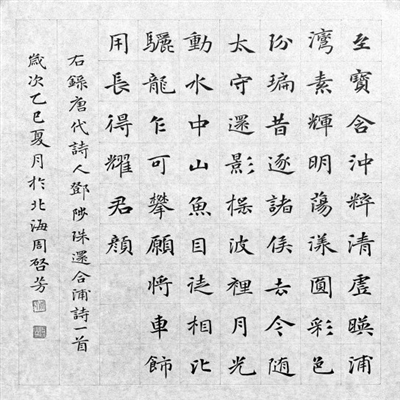 至寶含沖粹清虛暎浦
灣素輝明蕩漾圓彩色
玢㻞昔逐諸侯去今随
太守還影搖波裡月光
動水中山魚目徒相比
驪龍乍可攀願將車飾
用長得耀君顔
右錄唐代詩人鄧陟珠還合浦詩一首
歲次乙巳夏月於北海周啓芳